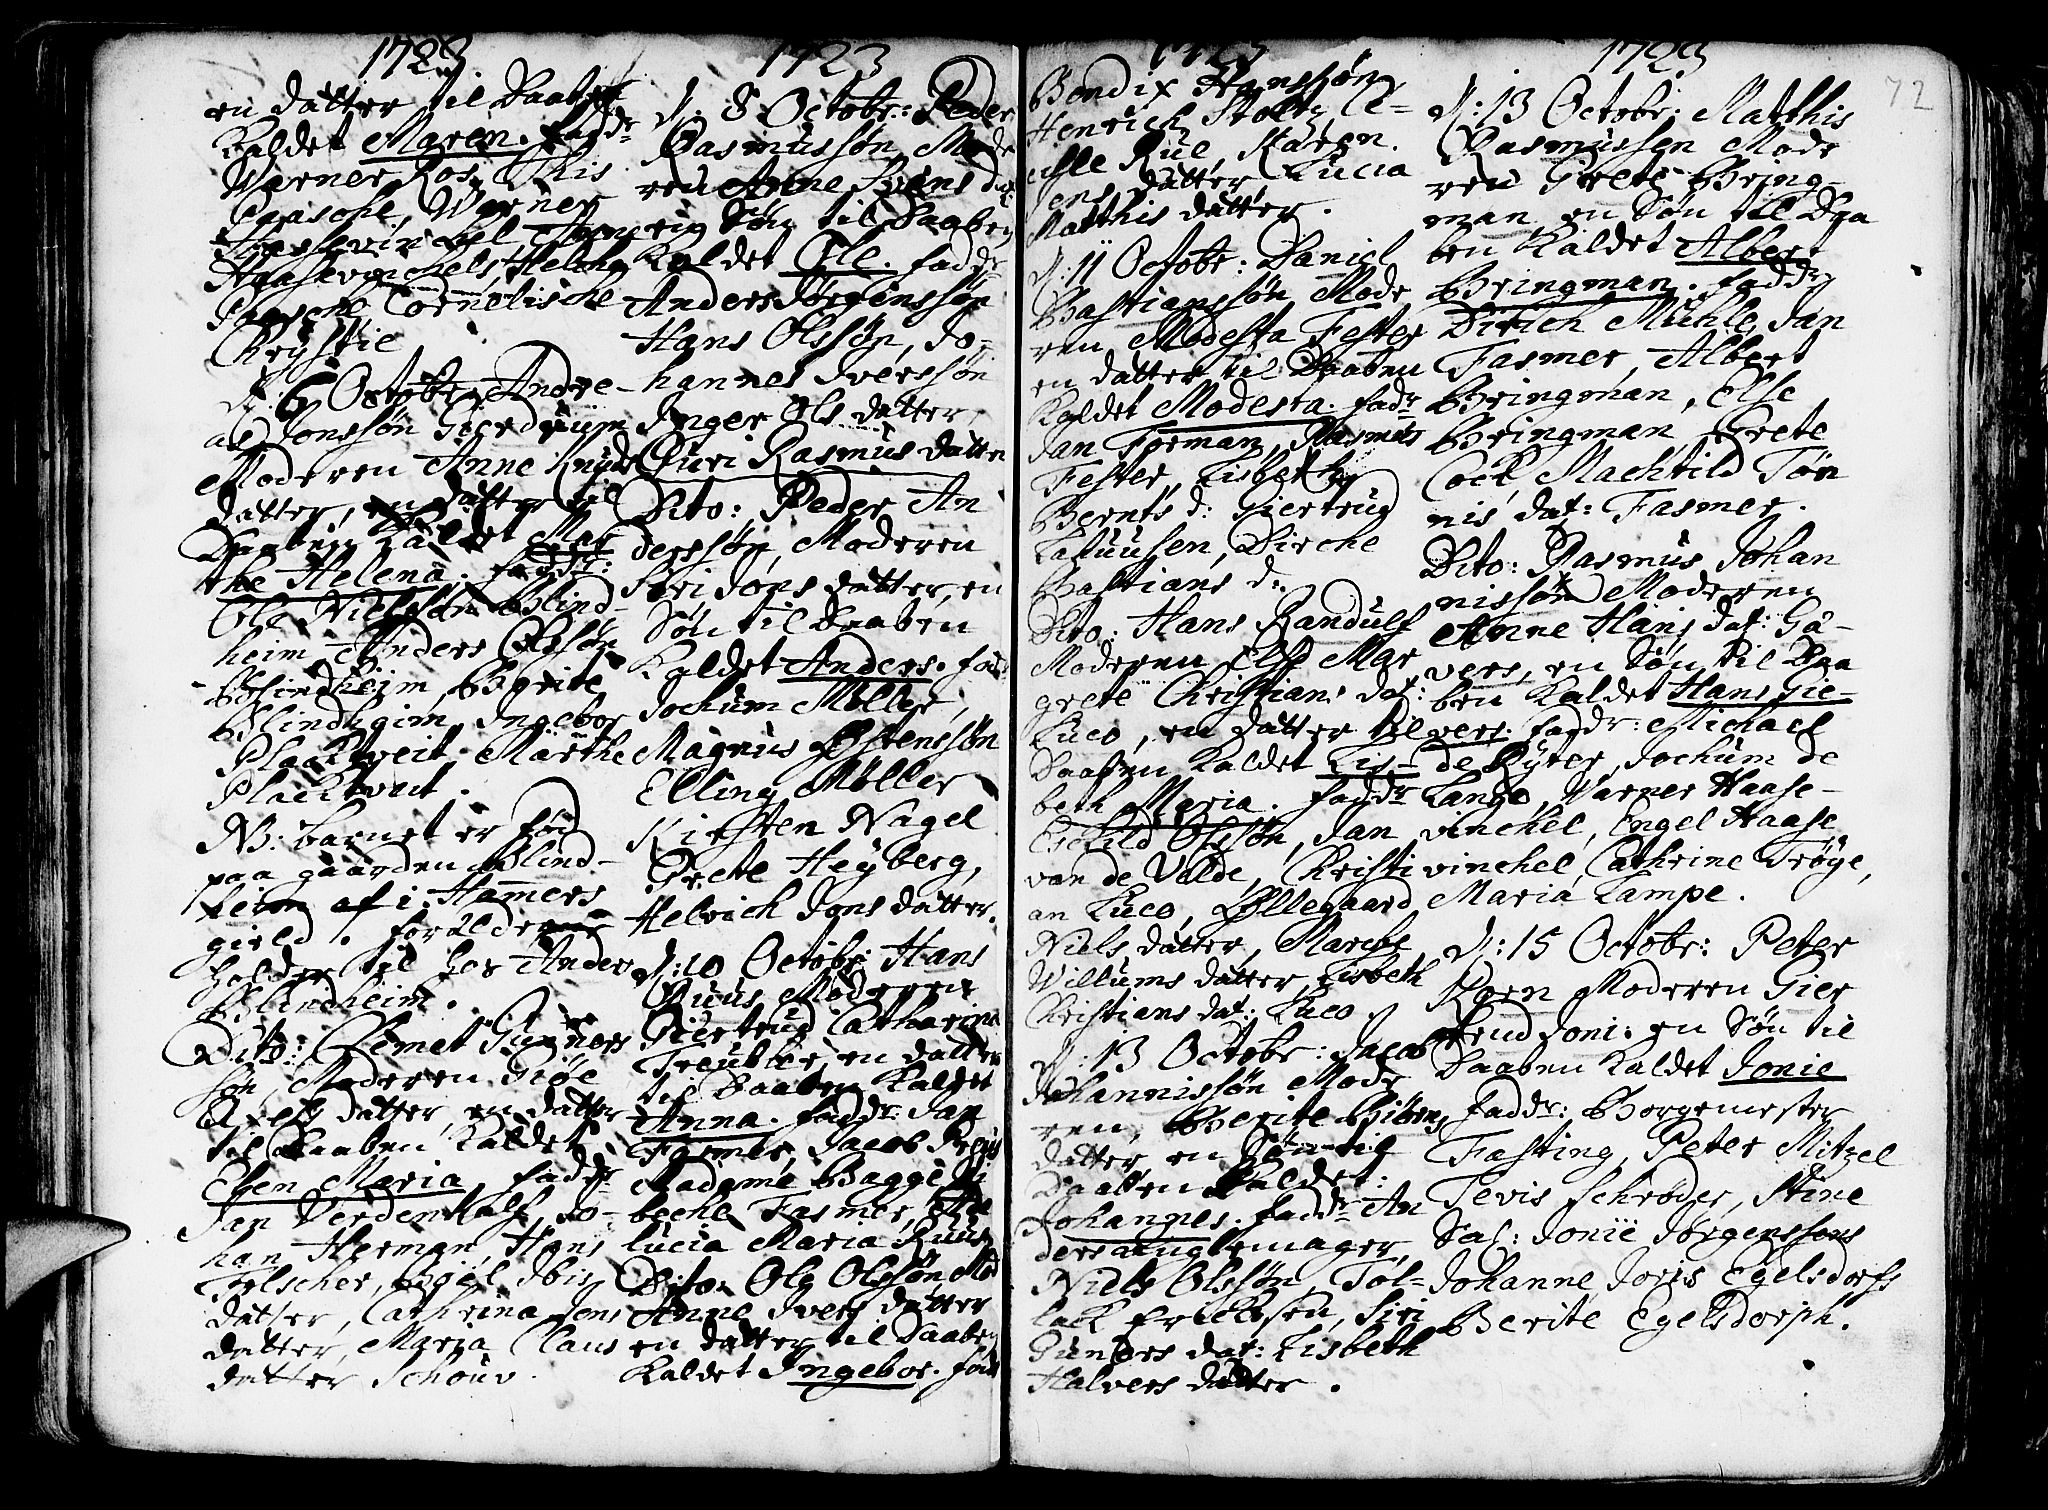 1723
en datter til Daaben
Kaldet Maren. fadr
Warner Ros, This
Paasche, Werner
Haasevinckel,
Haasevinchels,
Paasche Cornelische
Chrystie
d: 6 Octobr: Andre-
as Jonssøn Gierdrum
Moderen Anne Knuds
datter, en datter til
Daaben Kaldet Mar
the Helena. faddr:
Ole Nielssøn Blind-
heim Anders Olssøn
Blindheim, Berite
Blindheim, Ingebor
Plaaktveit, Marthe
Placktveit.
NB: barnet er fød
paa gaarden Blind-
heim af i Hammers
gield. forældrene
holder til hos Anders
Blindheim.
Dito: Clemet Gunners
søn, Moderen Giøe
datter, en datter
til Daaben Kaldet
Elen Maria, faddr
Jan Verdenhalf, Jo-
han Herman, Hans
Tolscher, Ibis
datter, Cathrina Jens
datter, Maria Claus
datter Schouv.
1723
d: 8 Octobr: Peder
Rasmussøn, Mode
ren Anne Ivers dat
en Søn til Daaben
Kaldet Ole. faddr
Anders Jørgenssøn
Hans Olssøn, Jo-
hannes Iverssøn
Inger Ols datter,
Guri Rasmus datter
Dito: Peder An
derssøn, Moderen
Siri Jons datter, en
Søn til Daaben
Kaldet Anders. fad:
Jochum Møller,
Magnus Østenssøn
Elling Møller
Kirsten Nagel
Grete Heyberg,
Helvich Jons datter.
d: 10 Octobr: Hans
Ruus, Moderen
Giertrud Catharina
Treubler, en datter
til Daaben Kaldet
Anna. faddr: Jan
Fasmer, Jacob
Madame Bagge
beche Fasmer,
lucia Maria Ruus
Dito: Ole Olssøn Mod
Anne Ivers datter
en datter til Daaben
Kaldet Ingebor. fad
1723
Bendix Hansøn,
Henrich Stoltz, Ce-
Rue, Karen
Jens datter Lucia
Matthis datter.
d: 11 Octobr: Daniel
Bastianssøn, Mode
ren Modesta Fester
en datter til Daaben
Kaldet Modesta. fadr
Jan Forman, Rasmus
Fester, Lisbeth
Bernts d: Giertrug
Dirche
Bastians d:
Dito: Hans Randulf
Moderen Else Mar
grete Christians dat:
Luco, en datter til
Daaben Kaldet Lis-
beth Maria. faddr
Eschild Olssøn, Jan
van de Velde, Christi
an Luco, Øllegaard
Niels datter, Marche
Willums datter, Lisbeth
Christians dat: Luco.
d: 13 Octobr: Jacob
Johannissøn Mode
ren, Berite Biørns
datter, en Søn til
Daaben Kaldet:
Johannes. faddr An
ders
Niels Olssøn, Tol-
lack Ericksen, Siri
Gunders dat: Lisbeth
Halvers datter.
1723
72
d: 13 Octobr: Matthis
Rasmussen Mode
ren Grete Bring-
man en Søn til Daa
ben Kaldet Albert
Bringman. faddr
Dirich Mühle, Jan
Fasmer, Albert
Bringman, Else
Bringman, Grete
Cock Machtild Tøn
nis dat: Fasmer.
Dito: Rasmus Johan
nissøn Moderen
Anne Hans dat: Gæ-
vers, en Søn til Daa
ben Kaldet Hans Gie-
vers. faddr: Michael
de Ryter, Jochum de
Lange, Warner Haase-
vinchel, Engel Haase
vinchel, Cathrine Trøye,
Maria Lampe.
d: 15 Octobr: Peter
Koren Moderen Gier
trud Joni: en Søn til
Daaben Kaldet Jonie
faddr: Borgemester
Fasting, Peter Mitzel
Tevis Schrøder, Stine
Sal: Jonie Jørgenssøns
Johanne Joris Egelsdorfs
Berite Egelsdorph.